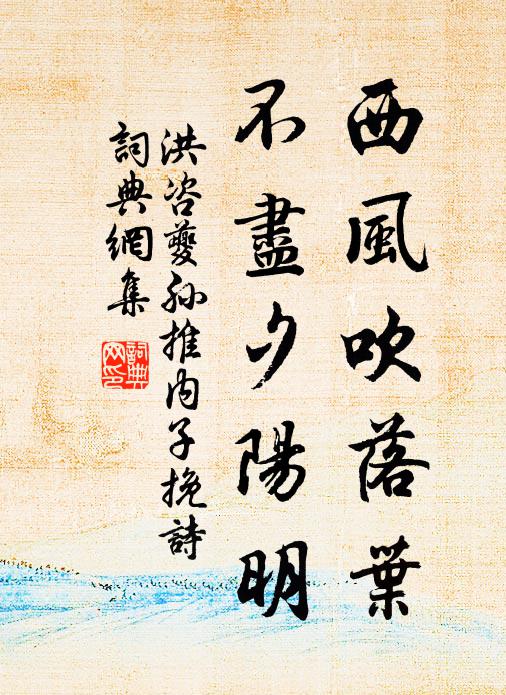 西風吹落葉
不盡夕陽明
洪咨夔孫推内子挽詩
詞典網集
詞典网印